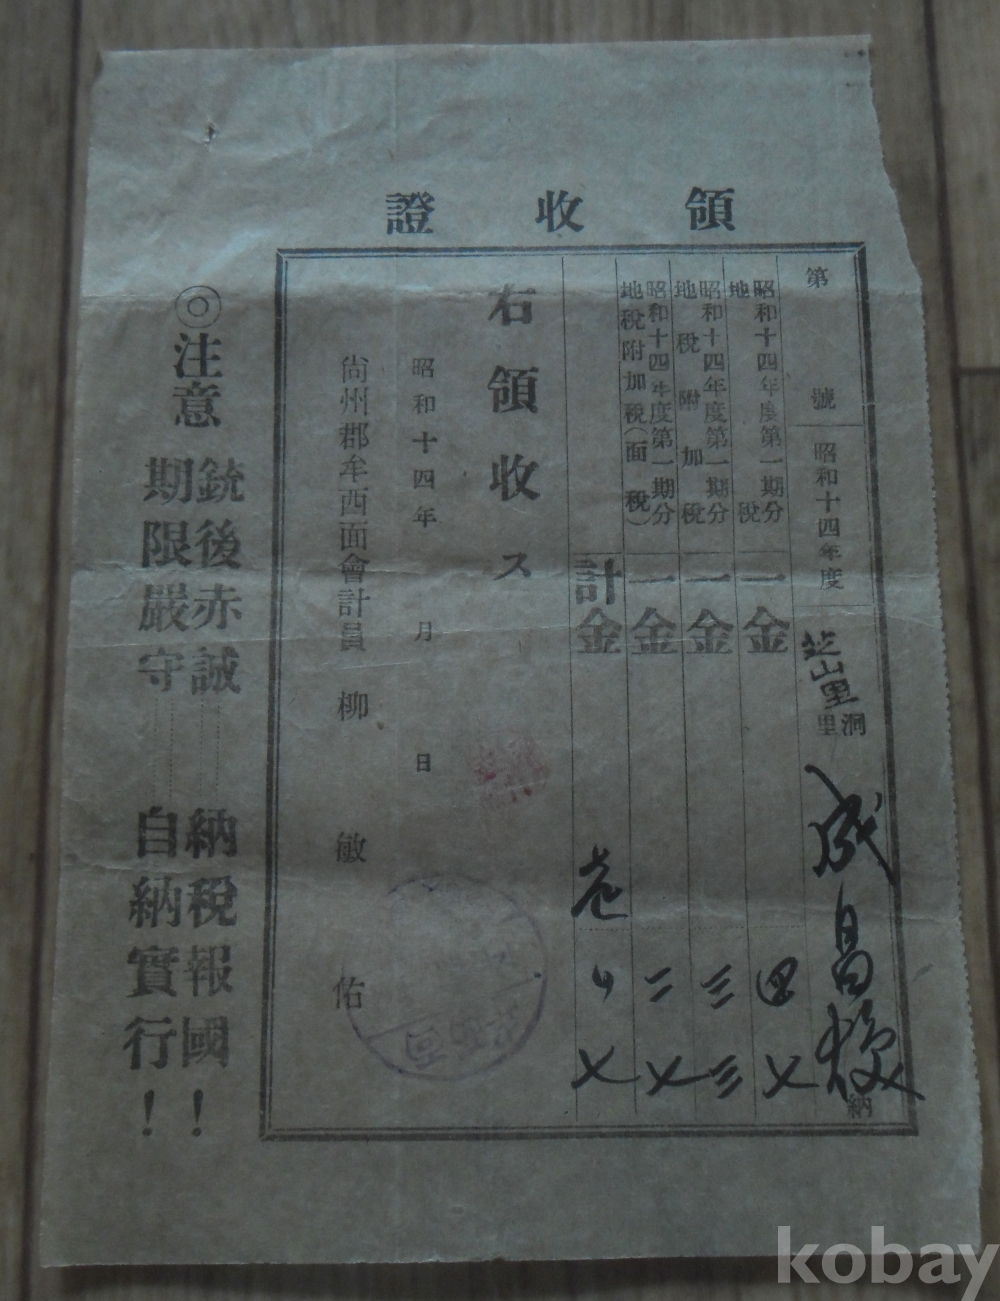 領收證
第 號 昭和十四年度 芝山里 洞里 成昌 納
昭和十四年度第一期分 地稅 一金 四 七
昭和十四年度第一期分 地稅附加稅 一金 三 三
昭和十四年度第一期分 地稅附加稅(面稅) 一金 二 七
計金 七
右領收ス
昭和十四年 月 日
尙州郡牟西面會計員 柳敏佑
◎注意 銃後赤誠……納稅報國!
期限嚴守……自納實行!
kobay